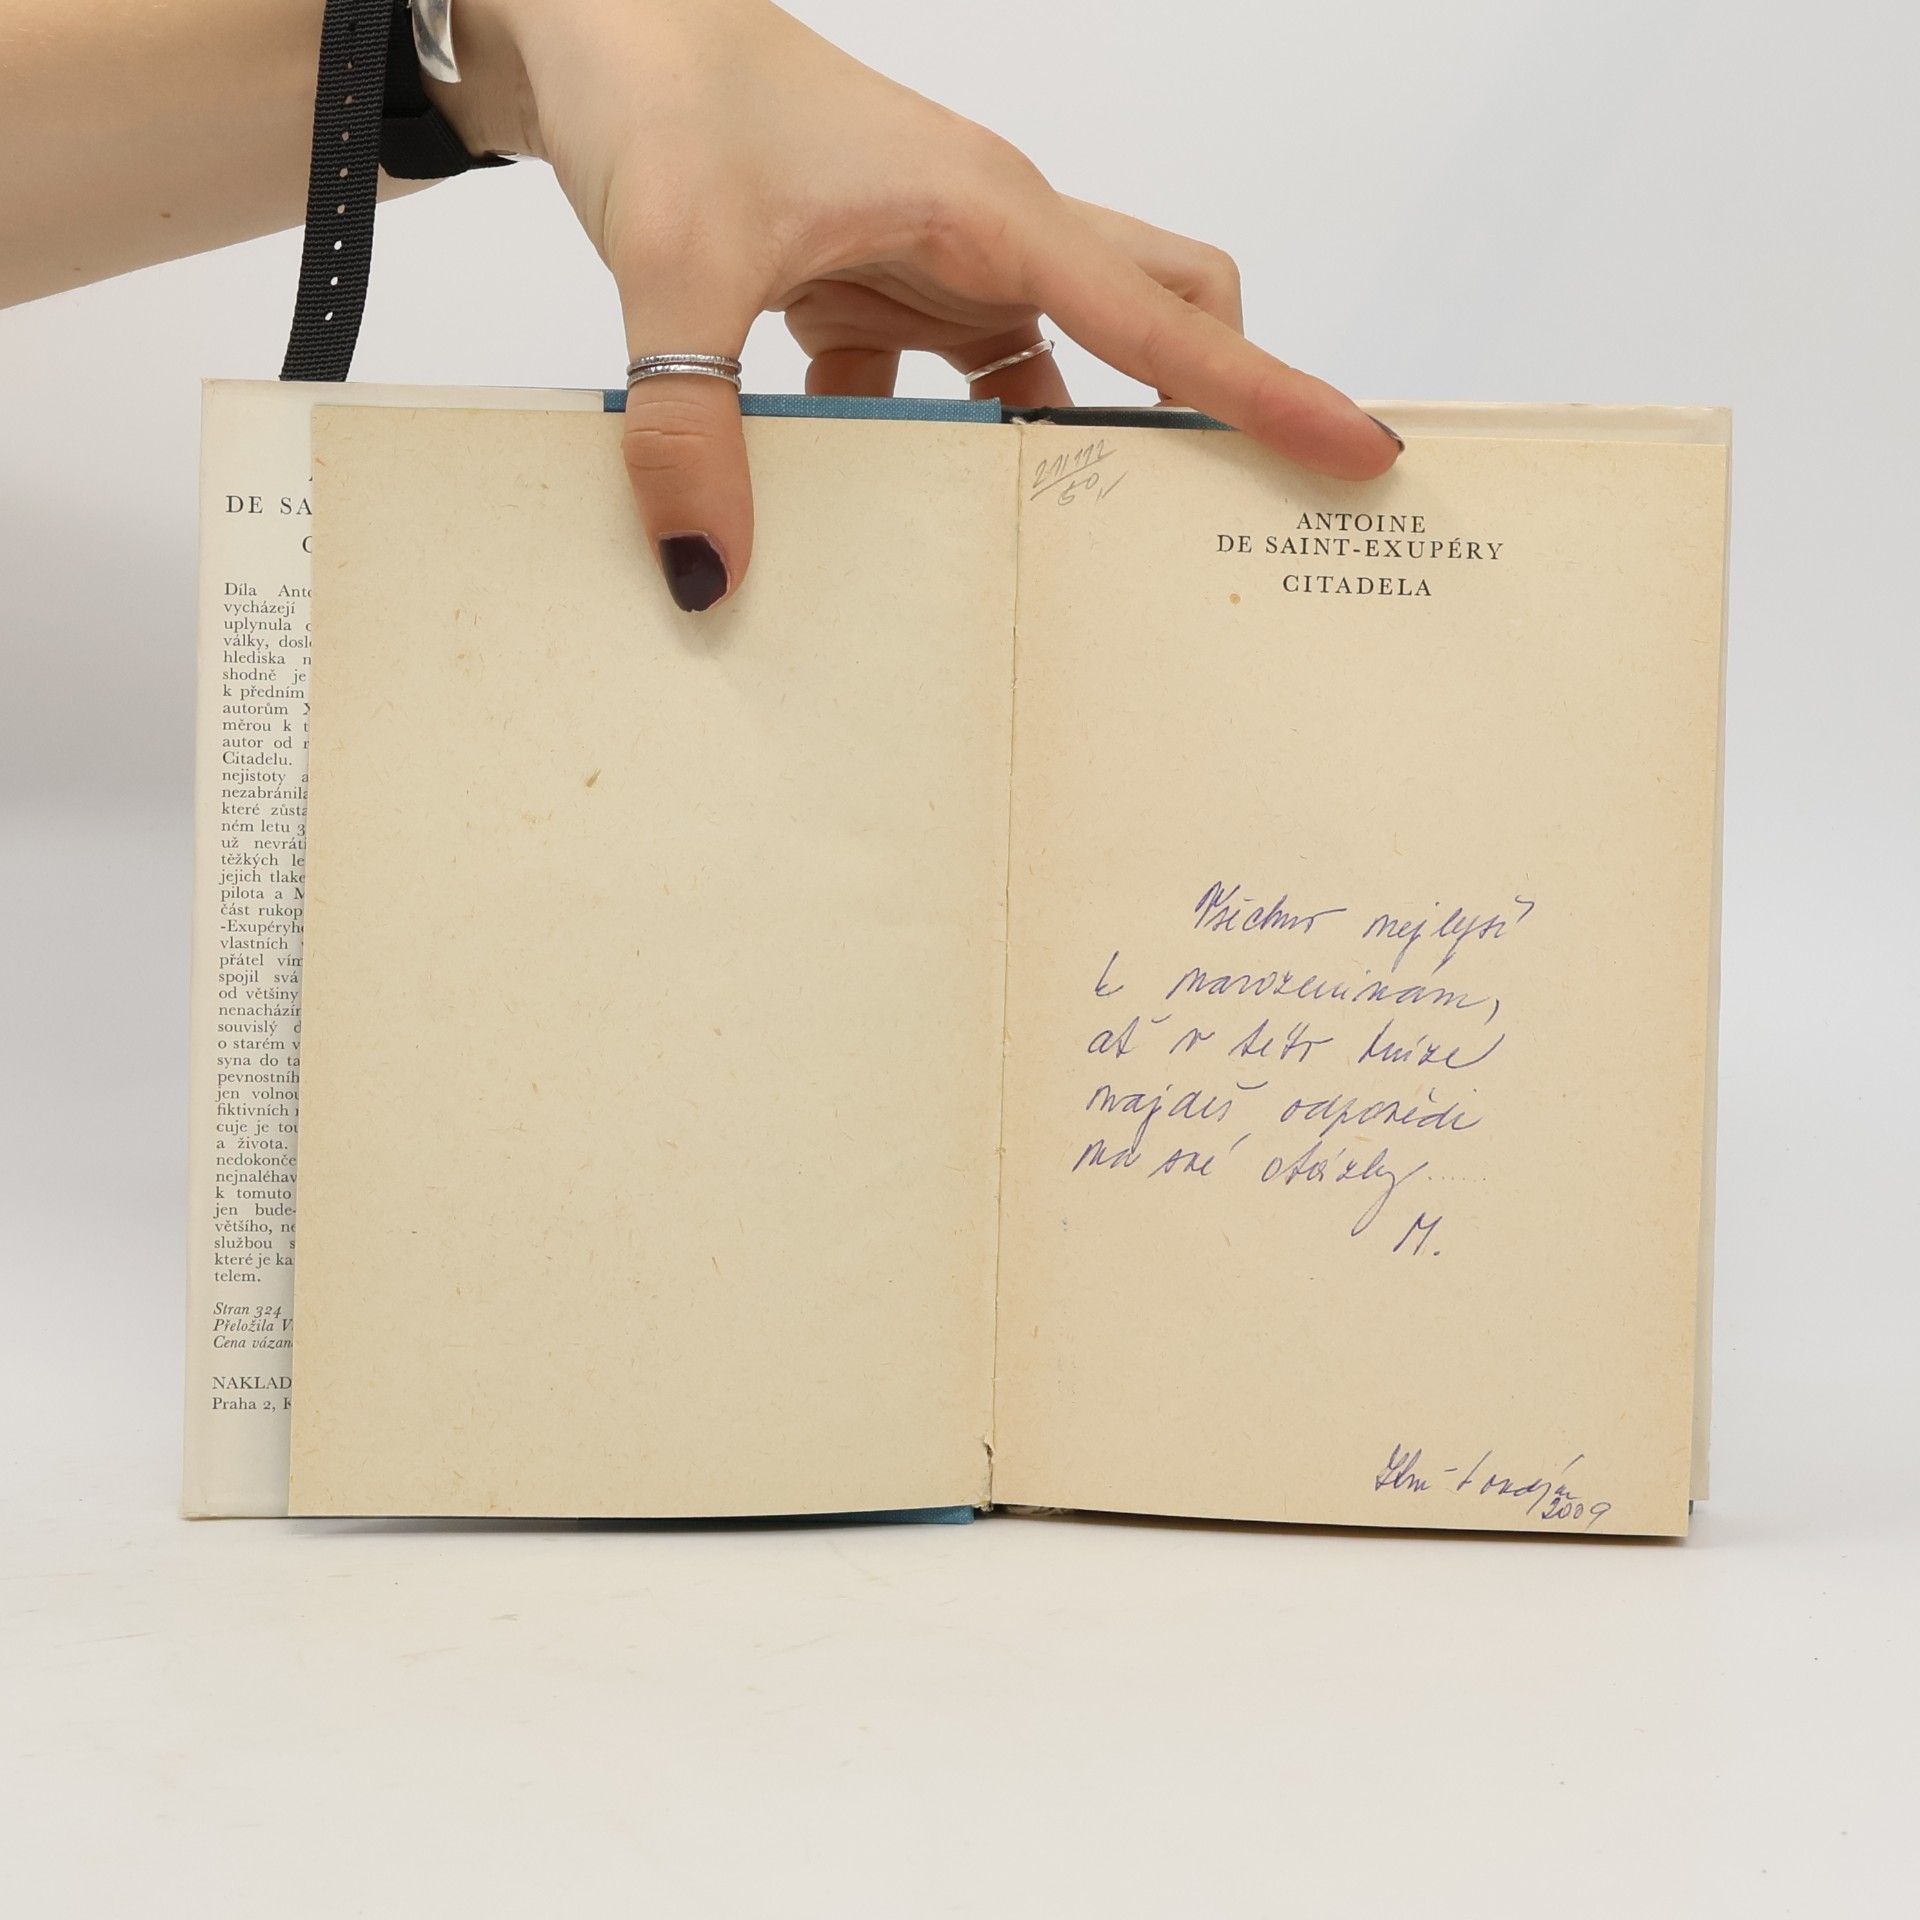 DE SA
Díla Anto
vycházejí
uplynula
války, dosl
hlediska
shodně je
k předním
autorům
měrou k t
autor od
Citadelu.
nejistoty a
nezabránila
které zůsta
ném letu 3
už nevrát
těžkých le
jejich tlake
pilota a M
část rukop
-Exupéryh
vlastních
přátel vím
spojil svá
od většiny
nenacházím
souvislý d
o starém v
syna do ta
pevnostníh
jen volnou
fiktivních
cuje je tou
a života.
nedokonče
nejnaléhav
k tomuto
jen bude-
většího, ne
službou s
které je ka
telem.
Stran 324
Přeložila V
Cena vázan
NAKLAD
Praha 2, K
50,
ANTOINE
DE SAINT-EXUPÉRY
CITADELA
Všechno nejlepší
k narozeninám,
ať v této knize
najdeš odpovědi
na své otázky......
M.
2009